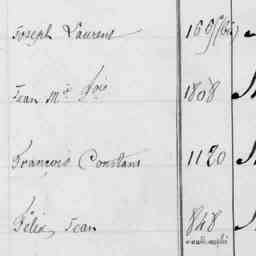 Joseph Laurent 1695 (762)
Jean Mie Loïs 1808
François Constans 1120
Félix, Jean 848